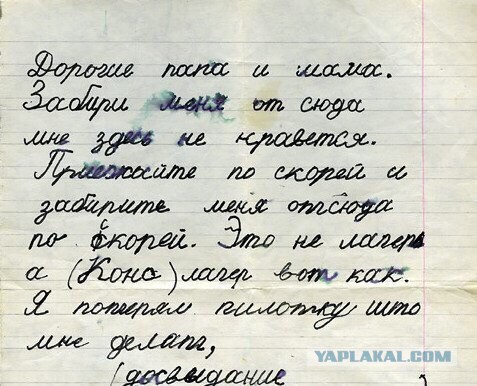 Дорогие папа и мама.
Забири меня от сюда
мне здесь не нравется.
Приезжайте по скорей и
забирите меня отсюда
по скорей. Это не лагерь
а (Конс) лагер вот как.
Я потерял пилотку што
мне делать,
(досвыдание
YAPLAKAL.COM